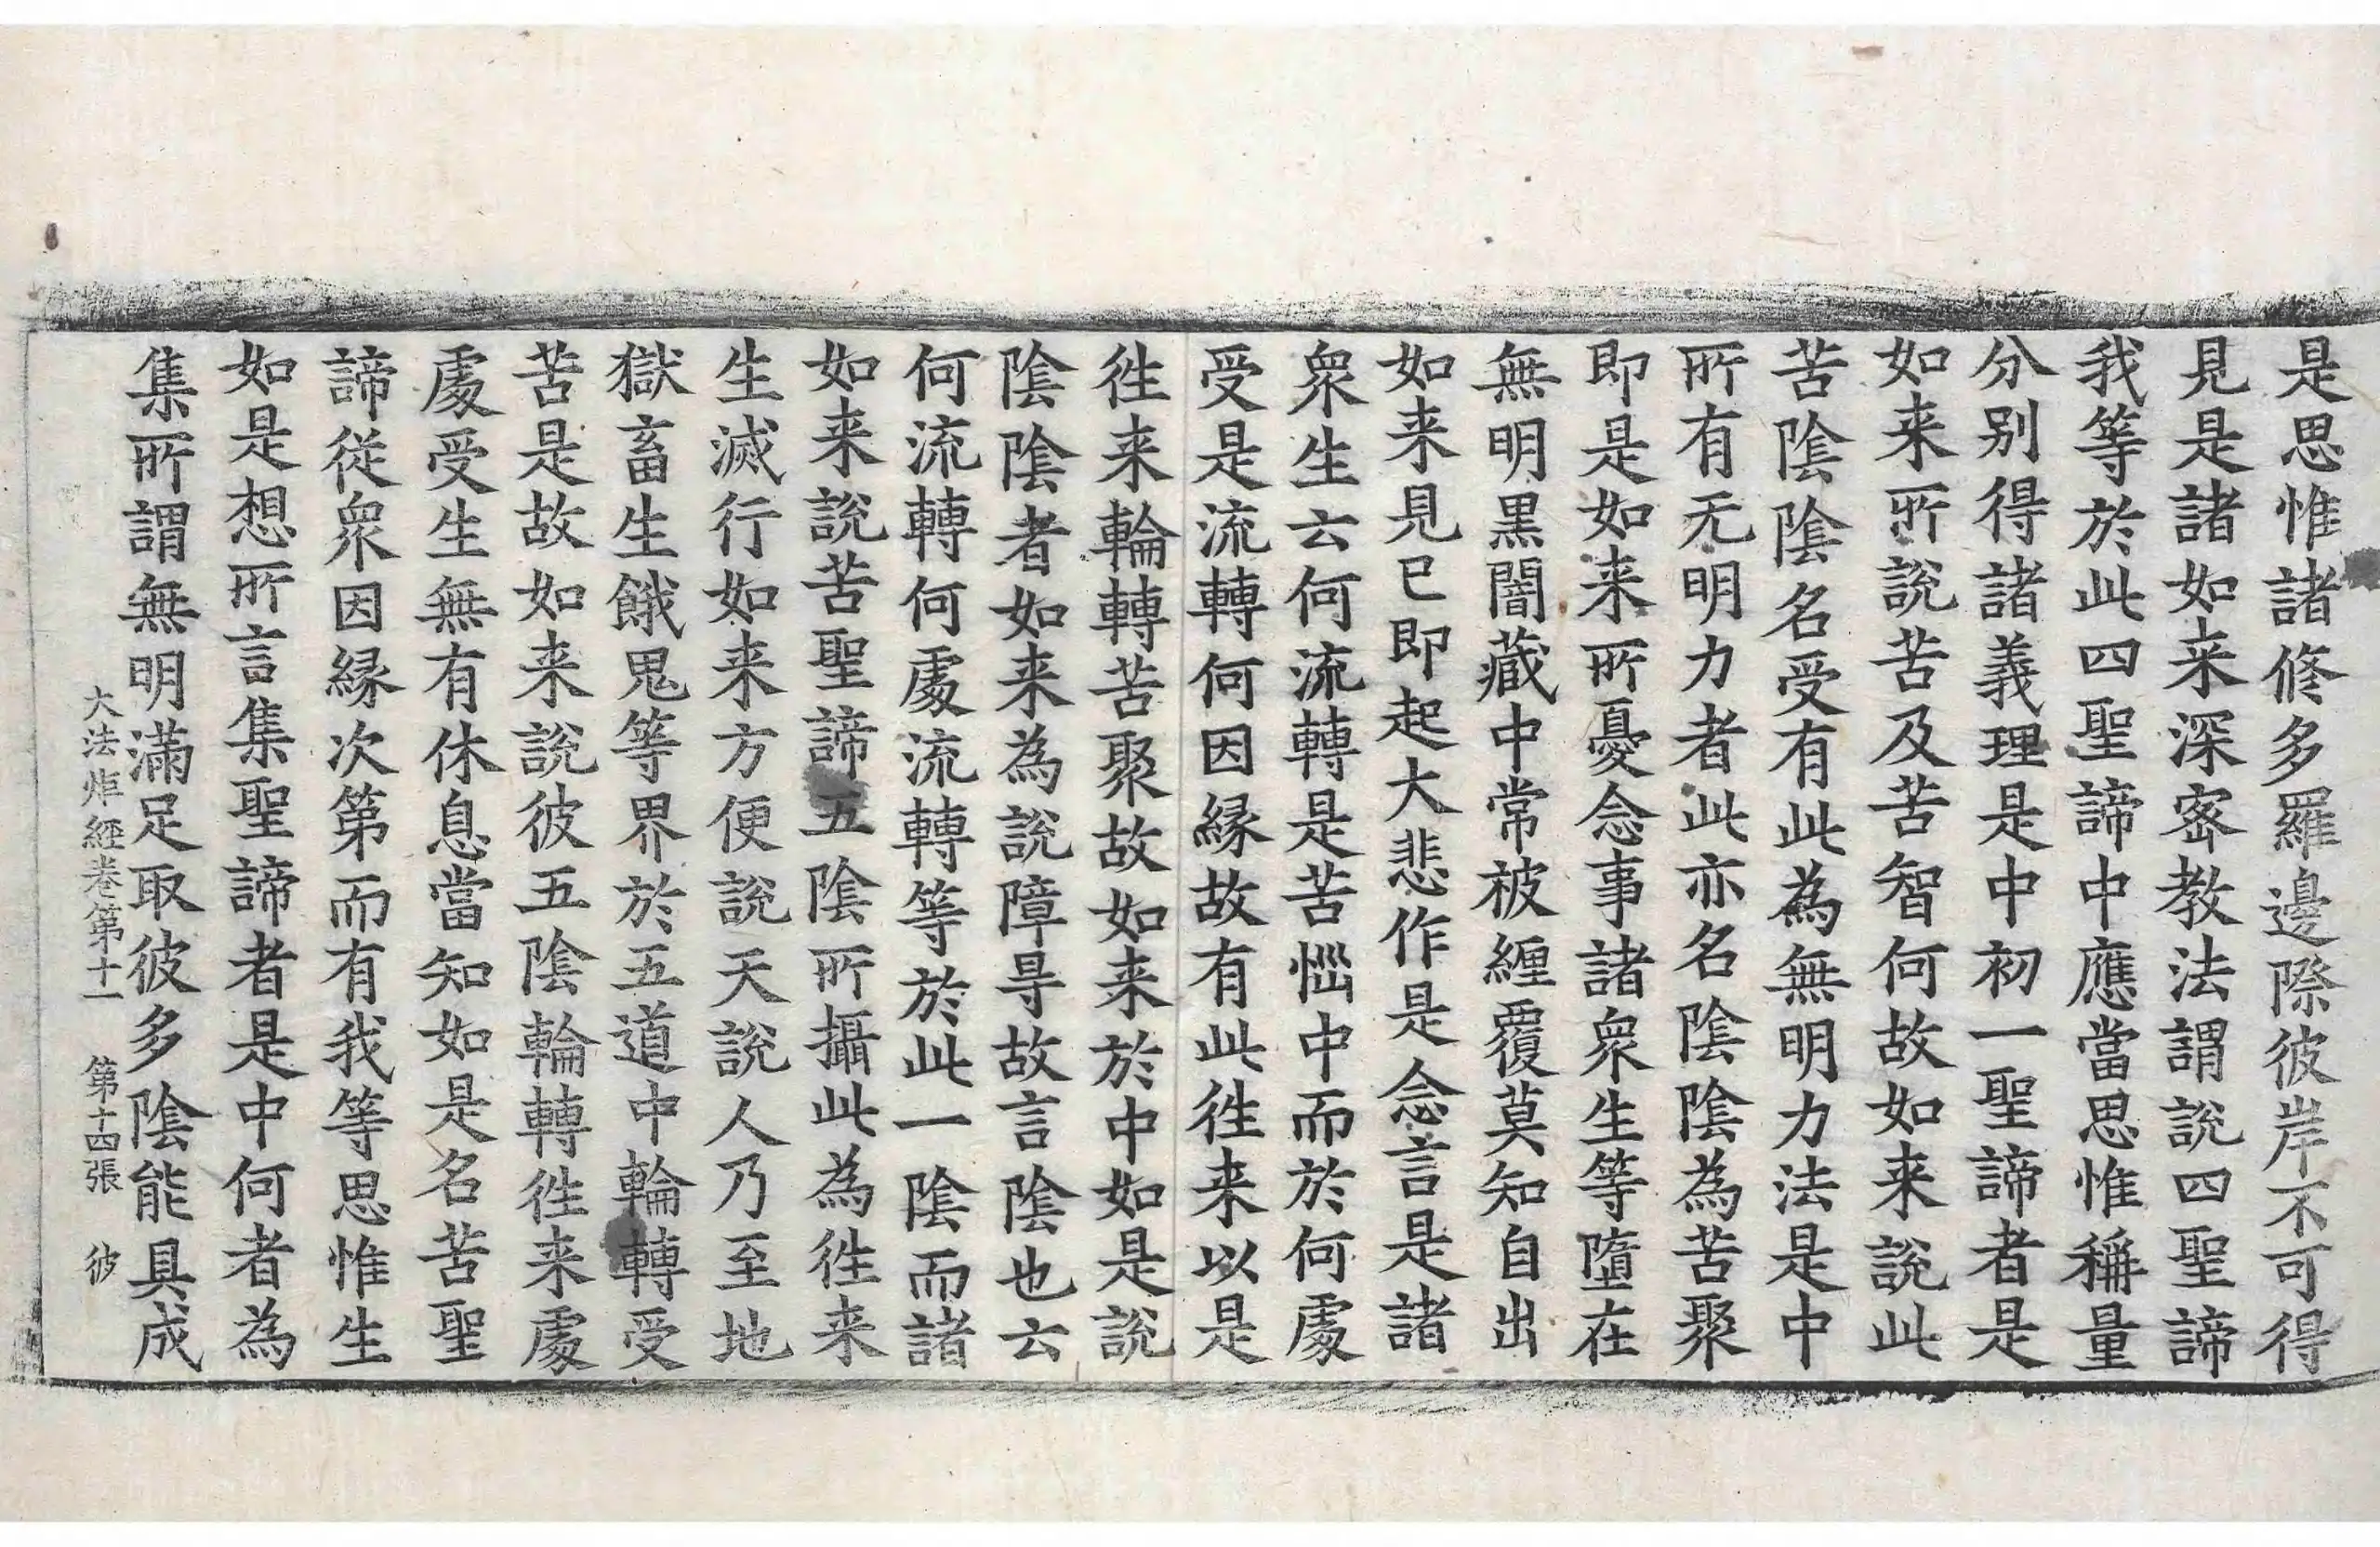 是思惟諸修多羅邊際彼岸不可得
見是諸如来深宻教法謂說四聖諦
我等於此四聖諦中應當思惟稱量
分别得諸義理是中初一聖諦者是
如来所說苦及苦智何故如来說此
苦陰陰名受有此為無明力法是中
所有无明力者此亦名陰陰為苦聚
即是如来所憂念事諸衆生等墮在
無明黒闇藏中常被纏覆莫知自出
如来見已即起大悲作是念言是諸
衆生云何流轉是苦惱中而於何處
受是流轉何因縁故有此徃来以是
徃来輪轉苦聚故如来於中如是說
陰陰者如来為說障㝵故言陰也云
何流轉何處流轉等於此一陰而諸
如来說苦聖諦五陰所攝此為徃来
生滅行如来方便說天說人乃至地
獄畜生餓鬼等界於五道中輪轉受
苦是故如来說彼五陰輪轉徃来處
處受生無有休息當知如是名苦聖
諦從衆因縁次第而有我等思惟生
如是想所言集聖諦者是中何者為
集所謂無明滿足取彼多陰能具成
大法炬經卷第十一 第十四張 彼